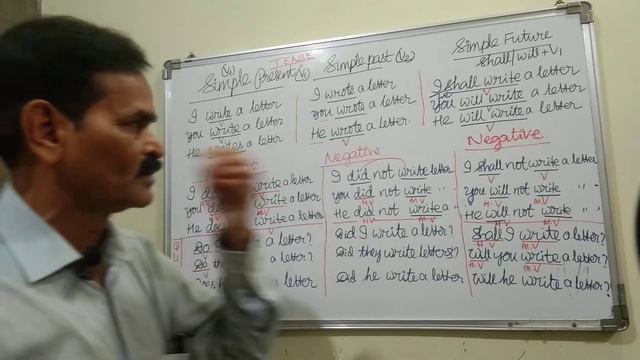 TENSE
(V1)
Simple Present(V1)
I write a letter
you write a letter
He writes a letter
I write a letter
you write a letter
He write a letter
a letter?
Do a letter?
letter
Simple past (V2)
I wrote a letter
you wrote a letter
He wrote a letter.
Negative
I did not write letter
you did not write " "
H.V M.V
He did not write a "
H.V M.V
Did I write a letter?
Did they write letters?
Did he write a letter
Simple Future
Shall/will+V1
I shall write a letter
you will write a letter
He will write a letter
Negative
I shall not write a letter
you will not write " "
H.V M.V
He will not write " "
H.V M.V
Shall I write a letter?
H.V M.V
will you write a letter?
H.V M.V
will he write a letter?